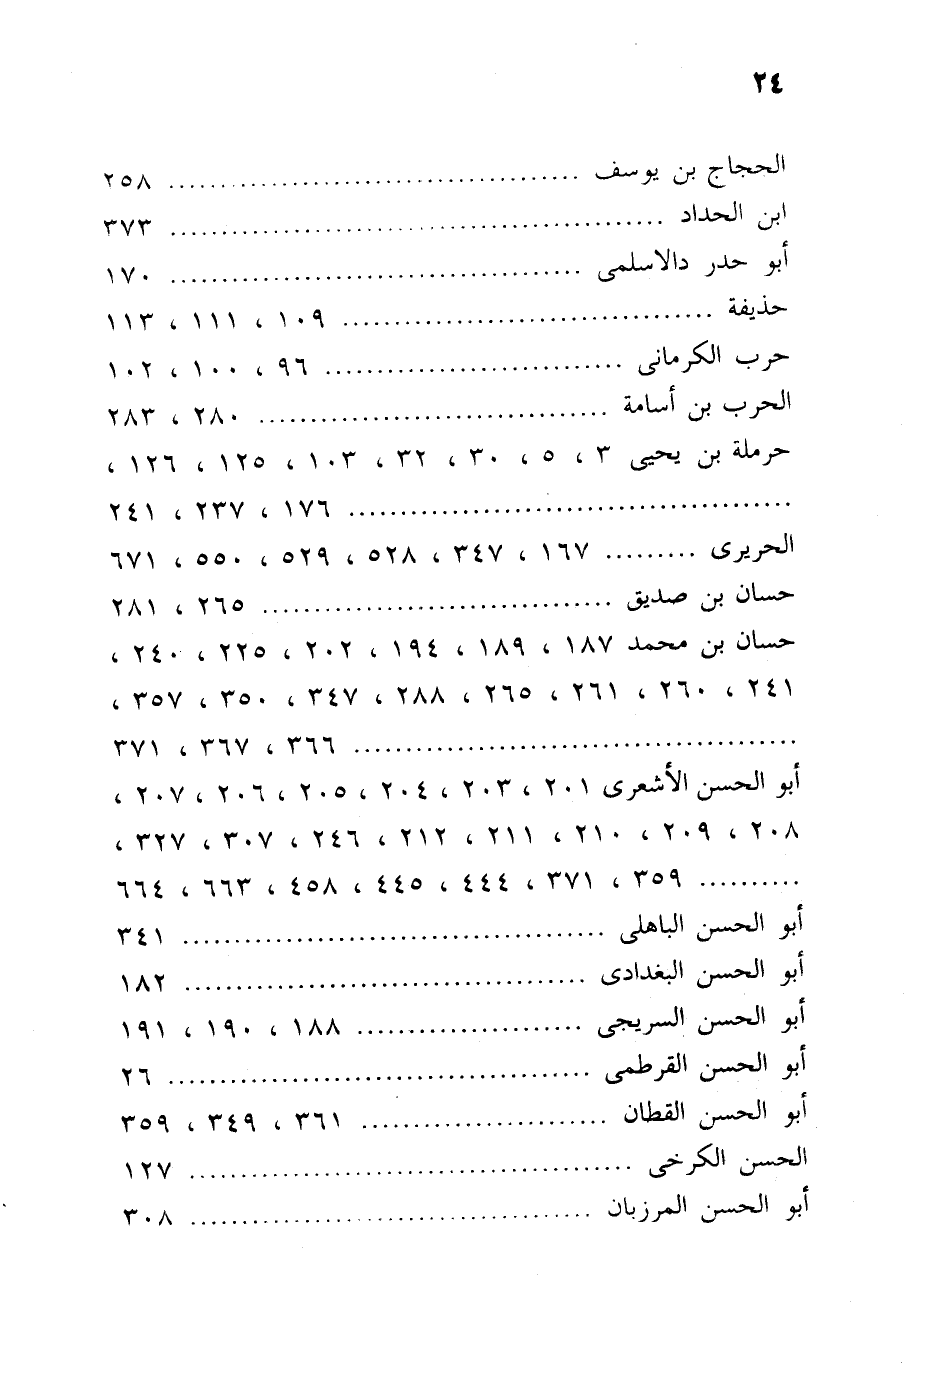 ٢٤
الحجاج بن يوسف ........................................ ٢٥٨
ابن الحداد ................................................ ٣٧٣
أبو حدر دالاسلمى ........................................ ١٧٠
حذيفة .................................... ١٠٩ ، ١١١ ، ١١٣
حرب الكرمانى ............................. ٩٦ ، ١٠٠ ، ١٠٢
الحرب بن أسامة .................................. ٢٨٠ ، ٢٨٣
حرملة بن يحيى ٣ ، ٥ ، ٣٠ ، ٣٢ ، ١٠٣ ، ١٢٥ ، ١٢٦ ،
........................................... ١٧٦ ، ٢٣٧ ، ٢٤١
الحريرى ......... ١٦٧ ، ٣٤٧ ، ٥٢٨ ، ٥٢٩ ، ٥٥٠ ، ٦٧١
حسان بن صديق .................................. ٢٦٥ ، ٢٨١
حسان بن محمد ١٨٧ ، ١٨٩ ، ١٩٤ ، ٢٠٢ ، ٢٢٥ ، ٢٤٠ ،
٢٤١ ، ٢٦٠ ، ٢٦١ ، ٢٦٥ ، ٢٨٨ ، ٣٤٧ ، ٣٥٠ ، ٣٥٧ ،
........................................... ٣٦٦ ، ٣٦٧ ، ٣٧١
أبو الحسن الأشعرى ٢٠١ ، ٢٠٣ ، ٢٠٤ ، ٢٠٥ ، ٢٠٦ ، ٢٠٧ ،
٢٠٨ ، ٢٠٩ ، ٢١٠ ، ٢١١ ، ٢١٢ ، ٢٤٦ ، ٣٠٧ ، ٣٢٧ ،
.......... ٣٥٩ ، ٣٧١ ، ٤٤٤ ، ٤٤٥ ، ٤٥٨ ، ٦٦٣ ، ٦٦٤
أبو الحسن الباهلى ......................................... ٣٤١
أبو الحسن البغدادى ....................................... ١٨٢
أبو الحسن السريجى ...................... ١٨٨ ، ١٩٠ ، ١٩١
أبو الحسن القرطمى ......................................... ٢٦
أبو الحسن القطان ........................ ٣٦١ ، ٣٤٩ ، ٣٥٩
الحسن الكرخى ........................................... ١٢٧
أبو الحسن المرزبان ....................................... ٣٠٨